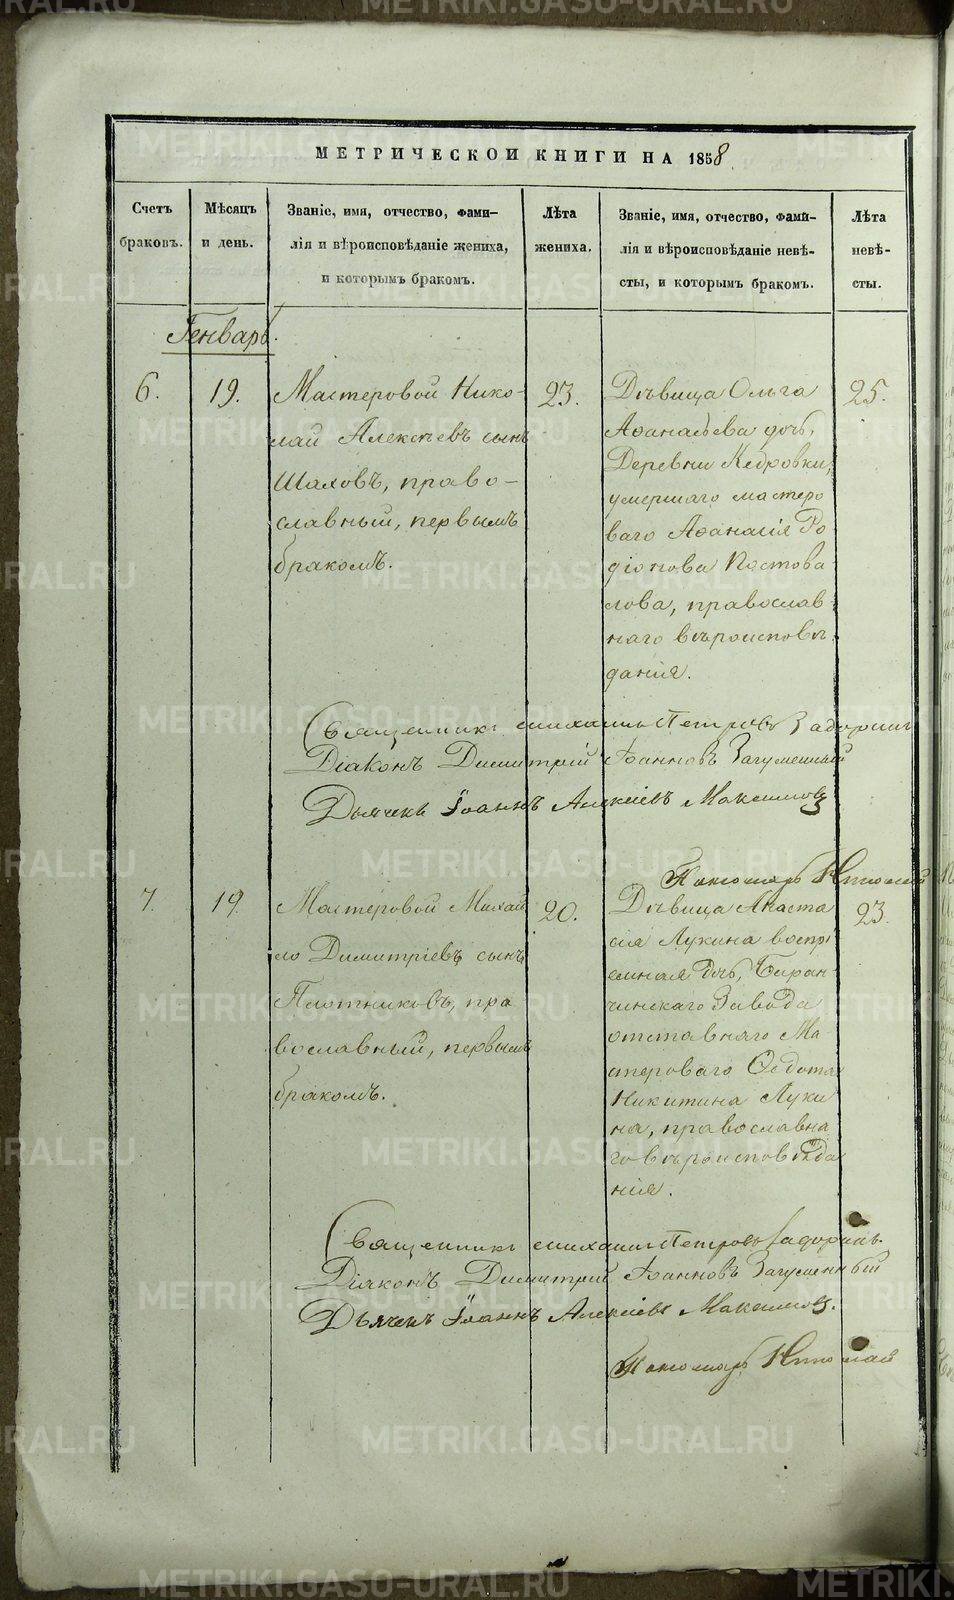 МЕТРИЧЕСКОЙ КНИГИ НА 1858
Счетъ браковъ.
Мѣсяцъ и день.
Званіе, имя, отчество, фами-
лія и вѣроисповѣданіе жениха,
и которымъ бракомъ.
Лѣта жениха.
Званіе, имя, отчество, фами-
лія и вѣроисповѣданіе невѣ-
сты, и которымъ бракомъ.
Лѣта невѣ-
сты.
Генварь.
6.
19.
Мастеровой Нико-
лай Алексѣевъ сынъ
Шаховъ, право-
славный, первымъ
бракомъ.
23.
Дѣвица Ольга
Аѳанасьева дочь,
Деревни Кедровки,
умершаго мастеро
ваго Аѳанасія Ро
діонова Постова
лова, православ
наго вѣроисповѣ
данія.
25.
Священникъ Михаилъ Петровъ Задоринъ
Діаконъ Димитрій Іоанновъ Загуменный
Дьячекъ Іоаннъ Алексіевъ Максимовъ
Пономарь
7.
19.
Мастеровой Михай
ло Димитріевъ сынъ
Плотниковъ, пра
вославный, первымъ
бракомъ.
20.
Дѣвица Анаста
сія Лукина воспрі
емная дочь, Баран-
чинскаго Завода
отставнаго Ма
стероваго Ѳедота
Никитина Луки
на, православна
го вѣроисповѣда
нія.
23.
Священникъ Михаилъ Петровъ Задоринъ.
Діаконъ Димитрій Іоанновъ Загуменный
Дьячекъ Іоаннъ Алексіевъ Максимовъ.
Пономарь
METRIKI.GASO-URAL.RU